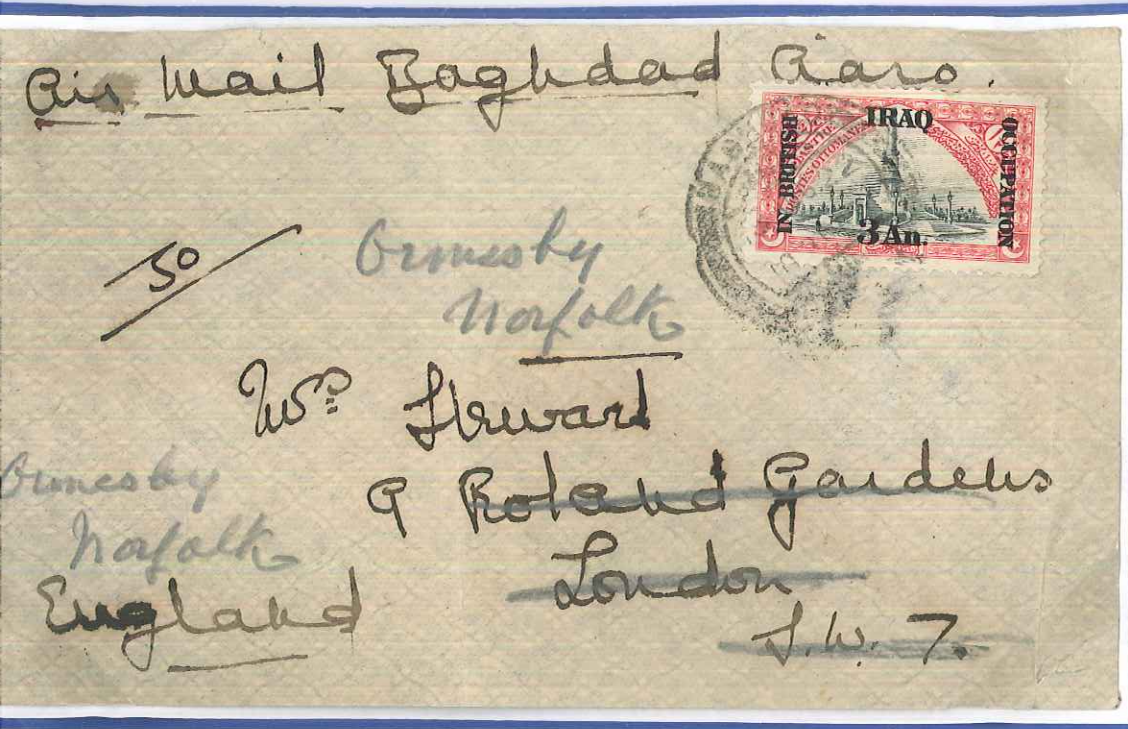 Air Mail Baghdad Cairo.
IRAQ
IN BRITISH
OCCUPATION
POSTES OTTOMANES
3 An.
50
Ormesby
Norfolk
Mrs Steward
9 Roland Gardens
London
S.W. 7.
Ormesby
Norfolk
England